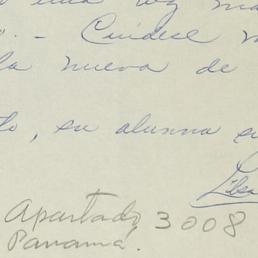 una vez
". - Cuídese
la nueva de
, su alumna
Apartado 3008
Panamá.